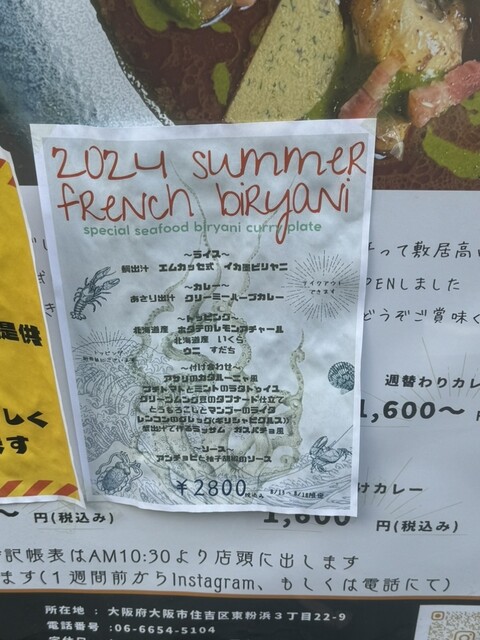 2024 summer
french biryani
special seafood biryani curry plate
～ライス～
鯛出汁 エムカッセ式 イカ墨ビリヤニ
～カレー～
あさり出汁 クリーミーハーブカレー
テイクアウト
できます
～トッピング～
北海道産 ホタテのレモンアチャール
北海道産 いくら
ウニ すだち
～付け合わせ～
アサリのカタルーニャ風
プチトマトとミントのラタトゥイユ
グリーンムング豆のタプナード仕立て
とうもろこしとマンゴーのライタ
レンコンのグレッグ(ギリシャピクルス)
～ソース～
アンチョビと柚子胡椒のソース
¥2800 税込み
って敷居高い
PENしました
どうぞご賞味く
提供
しく
す
週替わりカレ
1,600～ 円
けカレー
1,600 円(税込み)
～ 円(税込み)
記帳表はAM10:30より店頭に出します
ます(1週間前からInstagram、もしくは電話にて)
所在地 : 大阪府大阪市住吉区東粉浜3丁目22-9
電話番号 :06-6654-5104
定休日